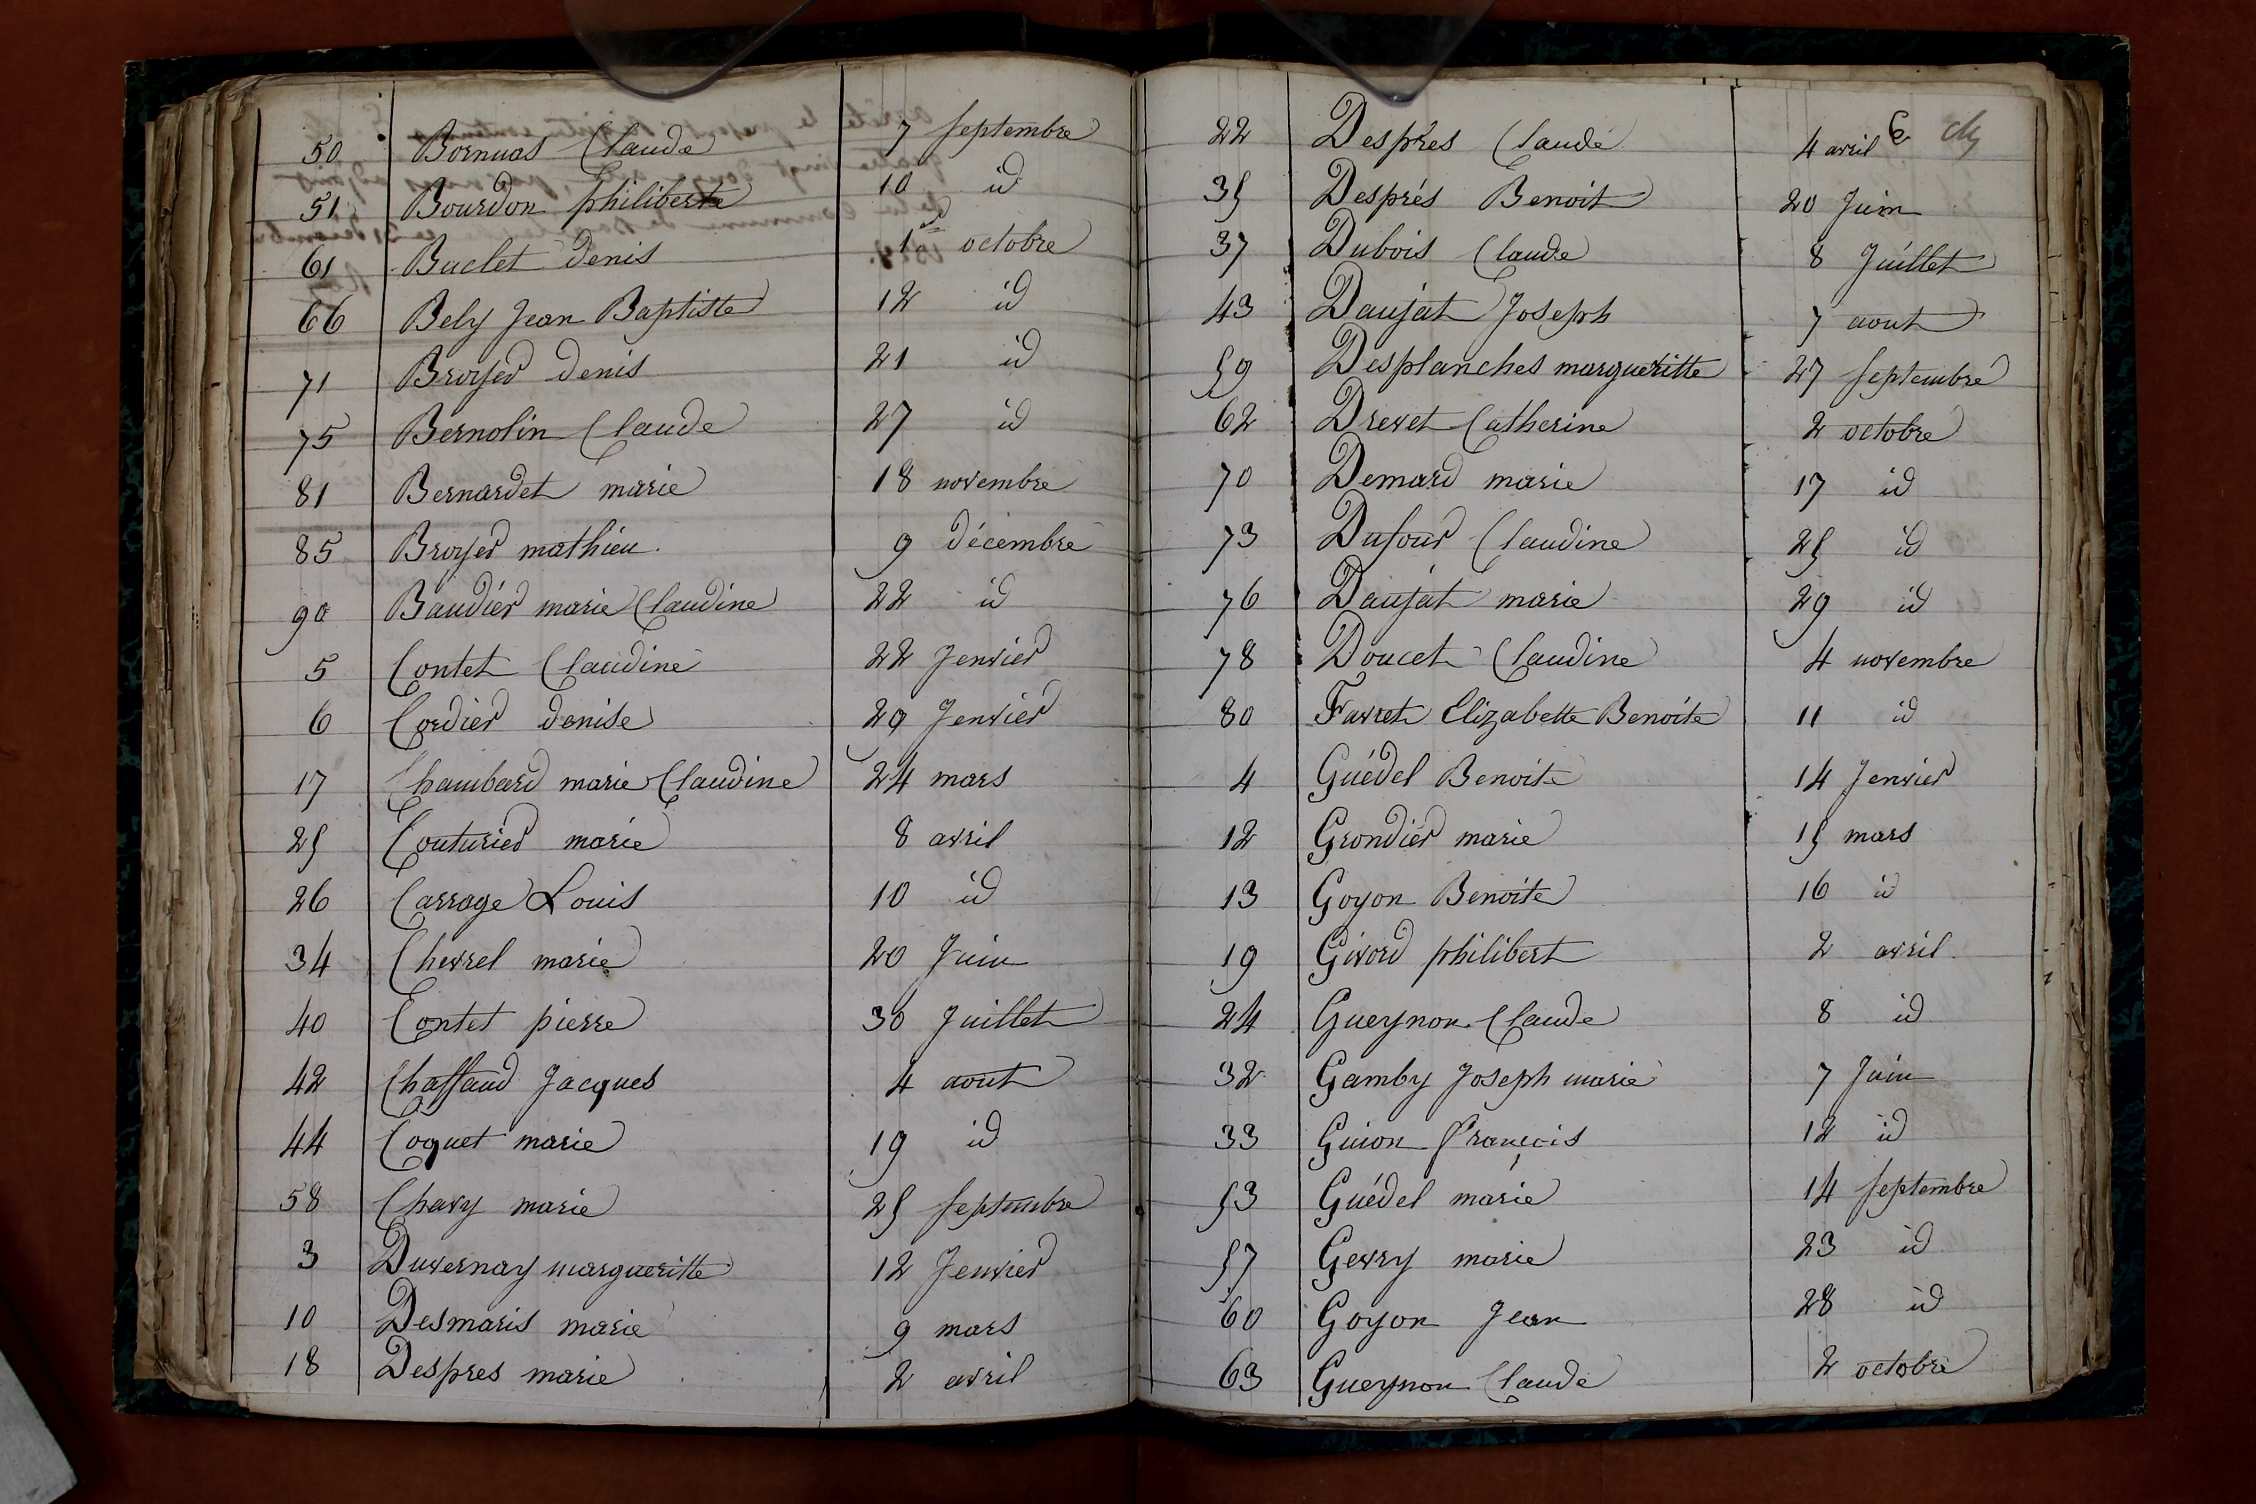 50 Bornuas Claude 7 septembre
51 Bourdon philiberte 10 id
61 Buclet denis 1er octobre
66 Bely Jean Baptiste 12 id
71 Broyer denis 21 id
75 Bernolin Claude 27 id
81 Bernardet marie 18 novembre
85 Broyer mathieu 9 décembre
90 Baudier marie Claudine 22 id
5 Contet Claudine 22 Jenvier
6 Cordier denise 29 Jenvier
17 Chambard marie Claudine 24 mars
25 Couturier marie 8 avril
26 Carrage Louis 10 id
34 Chevrel marie 20 Juin
40 Contet pierre 30 Juillet
42 Chaffaud Jacques 4 aout
44 Coquet marie 19 id
58 Chavy marie 25 septembre
3 Duvernay margueritte 12 Jenvier
10 Desmaris marie 9 mars
18 Despres marie 2 avril
22 Despres Claude 4 avril
35 Després Benoit 20 Juin
37 Dubois Claude 8 Juillet
43 Daujat Joseph 7 aout
59 Desplanches margueritte 27 septembre
62 Drevet Catherine 2 octobre
70 Demard marie 17 id
73 Dufour Claudine 25 id
76 Daujat marie 29 id
78 Doucet Claudine 4 novembre
80 Favret Elizabette Benoite 11 id
4 Guédel Benoite 14 Jenvier
12 Grondier marie 15 mars
13 Goyon Benoite 16 id
19 Givord philibert 2 avril
24 Gueynon Claude 8 id
32 Gamby Joseph marie 7 Juin
33 Guion françois 12 id
53 Guédel marie 14 septembre
57 Gevry marie 23 id
60 Goyon Jean 28 id
63 Gueynon Claude 2 octobre